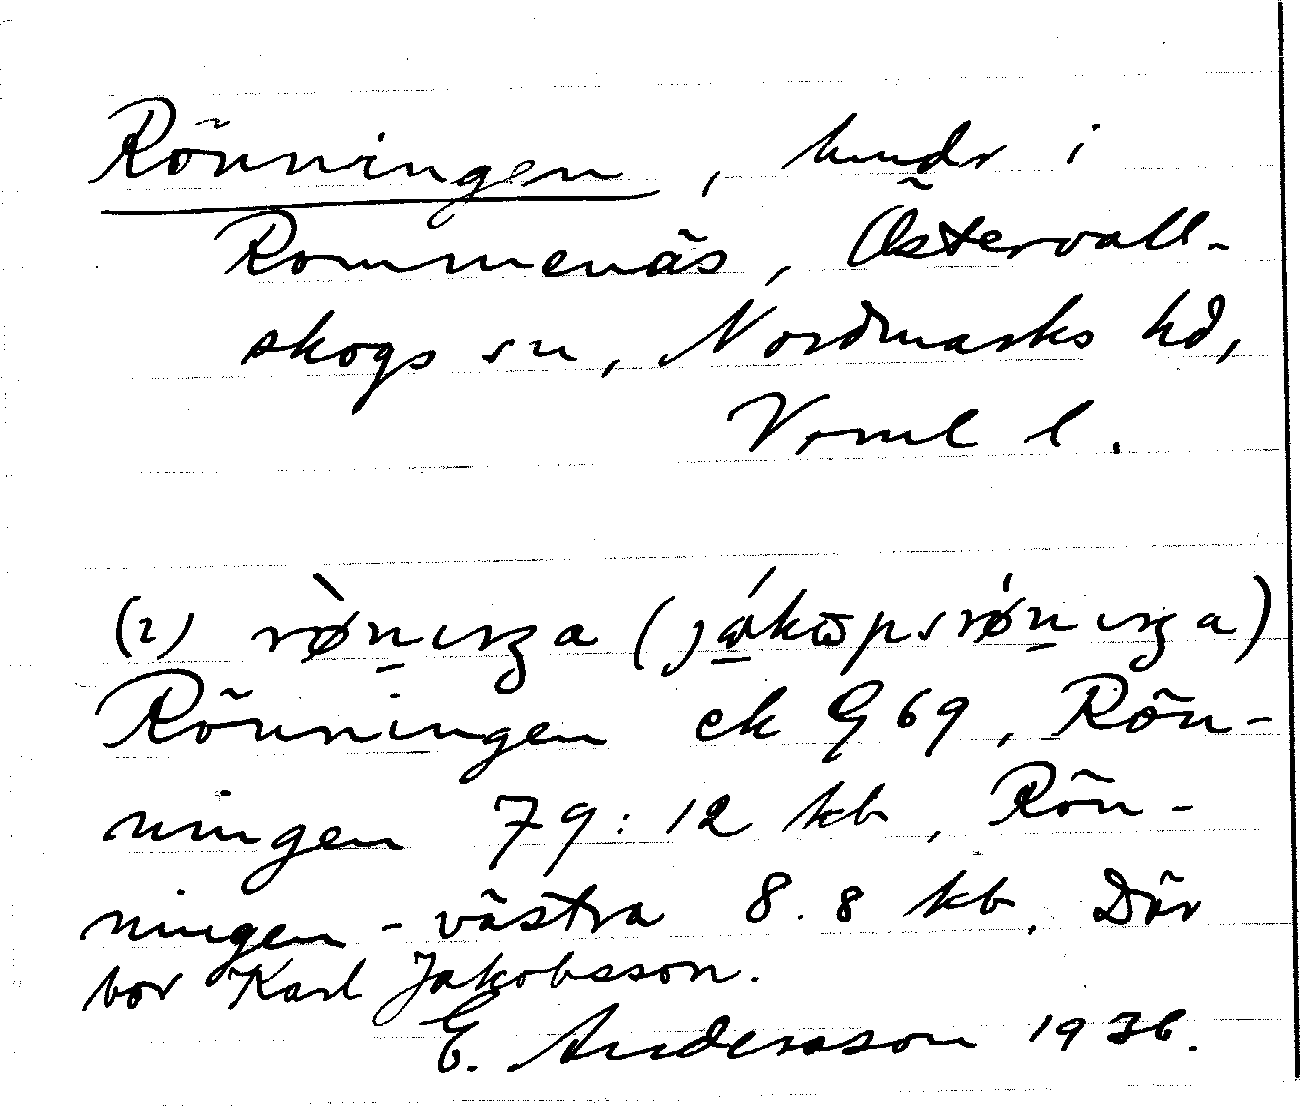 Rönningen, hmdr i
Rommenäs, Östervall-
skogs sn, Nordmarks hd,
Vrml l.
(2) rø̀nıŋa (jákɷpsrǿnıŋa)
Rönningen ek G69, Rön-
ningen 79:12 kb, Rön-
ningen-västra 8.8 kb. Där
bor Karl Jakobsson.
E. Andersson 1936.